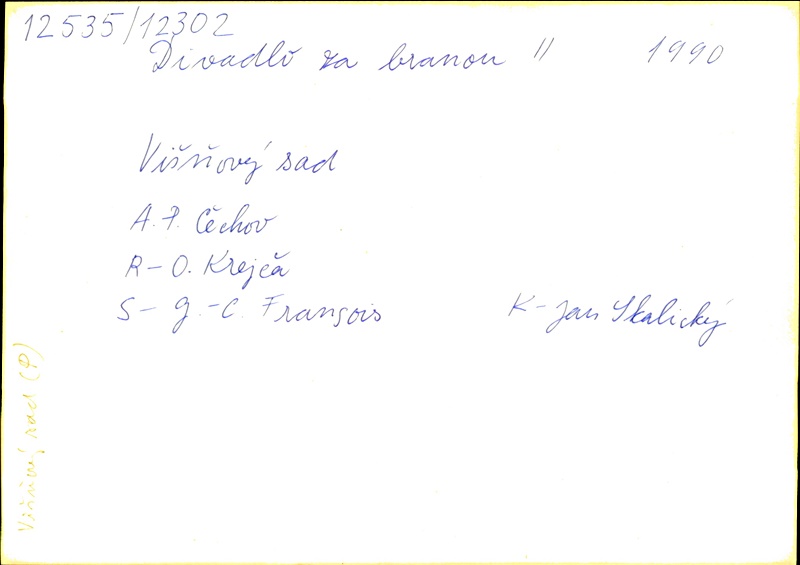 12535/12302
Divadlo za branou II 1990
Višňový sad
A. P. Čechov
R - O. Krejča
S - G.-C. François K - Jan Skalický
Višňový sad (P)